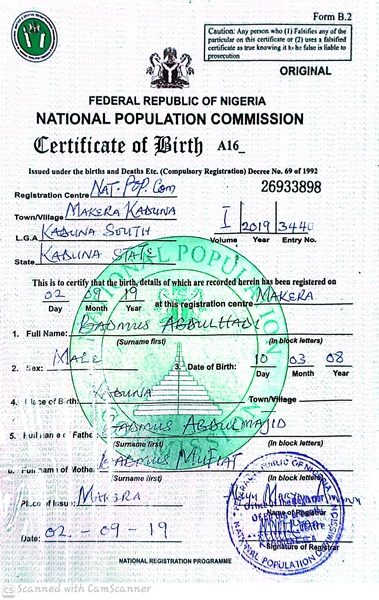 Form B.2
Caution: Any person who (1) Falsifies any of the
particular on this certificate or (2) uses a falsified
certificate as true knowing it to be false is liable to
prosecution
ORIGINAL
FEDERAL REPUBLIC OF NIGERIA
NATIONAL POPULATION COMMISSION
Certificate of Birth A16_
Issued under the births and Deaths Etc. (Compulsory Registration) Decree No. 69 of 1992
Registration Centre NAT. POP. COM
26933898
Town/Village MAKERA KADUNA
L.G.A KADUNA SOUTH
State KADUNA STATE
I 2019 3440
Volume Year Entry No.
This is to certify that the birth, details of which are recorded herein has been registered on
02 09 19 at this registration centre MAKERA
Day Month Year
1. Full Name: BADMUS ABDULHADI
(Surname first) (In block letters)
2. Sex: MALE 3. Date of Birth: 10 03 08
Day Month Year
4. Place of Birth KADUNA Town/Village
5. Full name of Father BADMUS ABDULMAJID
(Surname first) (In block letters)
6. Full name of Mother BADMUS MUFIAT
(Surname first) (In block letters)
Place of Issue: MAKERA
Name of Registrar
Date: 02 - 09 - 19
Signature of Registrar
NATIONAL REGISTRATION PROGRAMME
NATIONAL POPULATION
CS Scanned with CamScanner